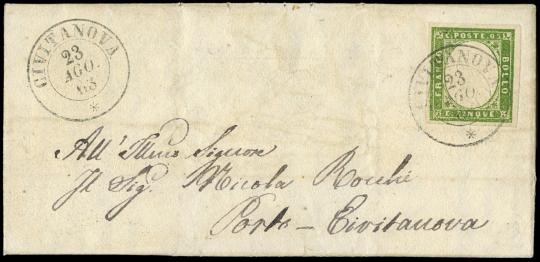 CIVITANOVA
23
AGO.
63
*
C. POSTE C. 5
FRANCO
BOLLO
C. CINQUE
CIVITANOVA
23
AGO.
*
All' Illmo Signore
Il Sig. Nicola Rocchi
Porto - Civitanova